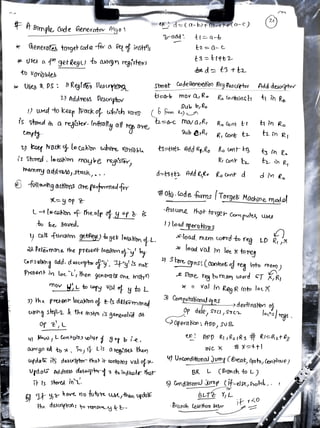 # A Simple Code Generator Algo:
* Generates target code for a seq of instr's
* uses a fn getReg() to assign registers to variables
* Uses 2 DS: 1) Register Descriptor
2) Address Descriptor
1) used to keep track of which var is stored in a register. Initially all reg are empty.
2) keep track of location where variable is stored. location may be register, memory address, stack, ...
* following actions are performed for
x = y op z
L → location of the o/p of y op z is to be saved.
1) call function getReg() to get location of L.
2) Determine the present location of 'y' by consulting add. descriptor of y. If y is not present in loc 'L', then generate one instrn
mov y', L to copy val of y to L
3) the present location of z is determined using step 2 & the instrn is generated as
op z', L
4) Now, L contains value of y op z i.e. assigned to x. So, if L is a register then update its descriptor that it contains val of x. Update address descriptor of x to indicate that it is stored in 'L'.
5) If y, z have no future use, then update the descriptors to remove y & z.
21
ex: d = (a-b)+(a-c)+(a-c)
t1 = a-b
t2 = a-c
t3 = t1+t2
d = t3 + t2
Stmt Code Generation Reg Descriptor Add descriptor
t1=a-b mov a, R0
sub b, R0
R0 contains t1 t1 in R0
t2=a-c mov a, R1
sub c, R1
R0 cont t1
R1 cont t2
t1 in R0
t2 in R1
t3=t1+t2 Add R1, R0
R0 cont t3
R1 cont t2
t3 in R0
t2 in R1
d=t3+t2 Add R1, R0 R0 cont d d in R0
# Obj. Code forms / Target Machine model
-Assume that target computer uses
1) load operations
* load mem word to reg LD R1, x
* load val in loc x to reg
2) Store opns: (content of reg into mem)
* store reg to mem word ST x, R1
* = val in Reg R1 into loc x
3) Computational opns
op dest, src1, src2
destination of
Operation: ADD, SUB
ex: ADD R1, R2, R3 # R1=R2+R3
INC X # X=X+1
4) Unconditional Jump (Break, goto, Continue)
BR L (Branch to L)
5) Conditional Jump (if-else, switch..
BLTZ r, L
if r<0